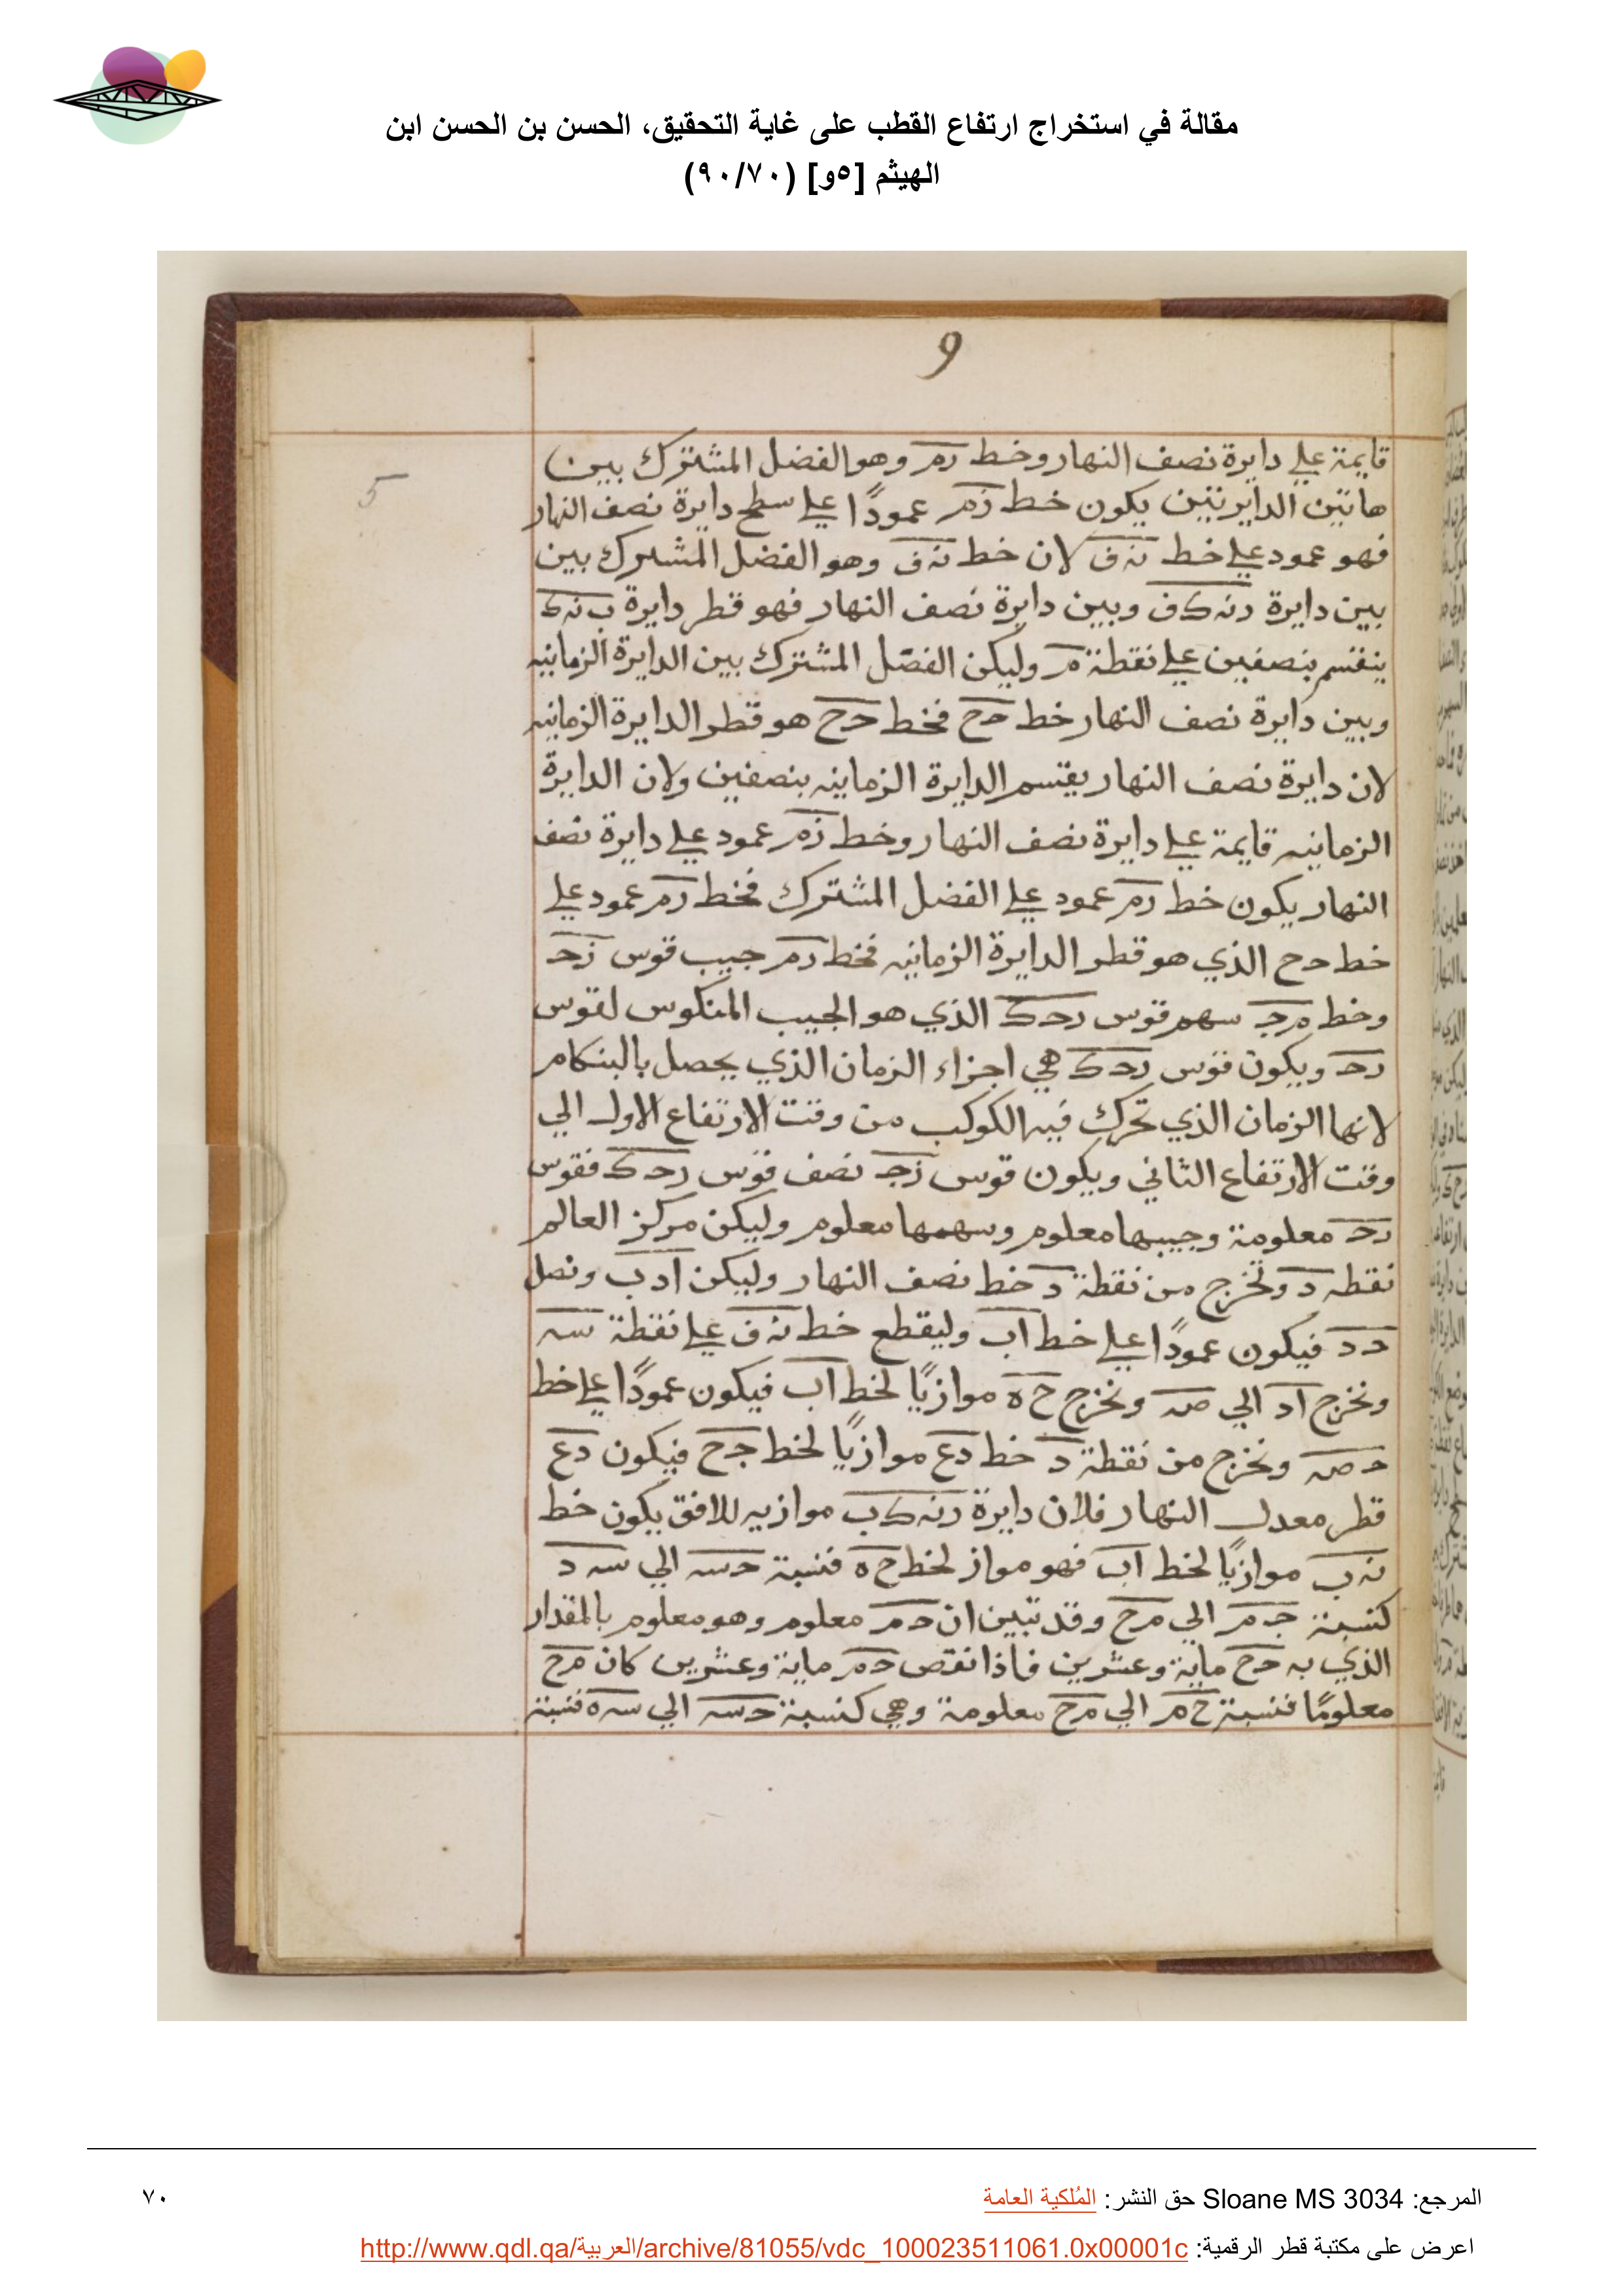 مقالة في استخراج ارتفاع القطب على غاية التحقيق، الحسن بن الحسن ابن
الهيثم [٥و] (٩٠/٧٠)
9
5
قايمة علي دايرة نصف النهار وخط رم وهو الفضل المشترك بين
هاتين الدايرتين يكون خط زم عمودًا علي سطح دايرة نصف النهار
فهو عمود علي خط نه ف لان خط نه ف وهو الفضل المشترك بين
بين دايرة رنه ك ف وبين دايرة نصف النهار فهو قطر دايرة ب نه ك
ينقسم بنصفين علي نقطة م وليكن الفصل المشترك بين الدايرة الزمانيه
وبين دايرة نصف النهار خط حح فخط حح هو قطر الدايرة الزمانيه
لان دايرة نصف النهار يقتسم الدايرة الزمانيه بنصفين ولان الدايرة
الزمانيه قايمة علي دايرة نصف النهار وخط زم عمود علي دايرة نصف
النهار يكون خط رم عمود علي الفضل المشترك فخط رم عمود علي
خط حح الذي هو قطر الدايرة الزمانيه فخط رم جيب قوس زح
وخط مج سهم قوس رحك الذي هو الجيب المنكوس لقوس
رح ويكون قوس رحك هي اجزاء الزمان الذي يحصل بالبنكام
لانها الزمان الذي تحرك فيه الكوكب من وقت الارتفاع الاول الي
وقت الارتفاع الثاني ويكون قوس زج نصف قوس رحك فقوس
رح معلومة وجيبها معلوم وسهمها معلوم وليكن مركز العالم
نقطه د ونخرج من نقطة د خط نصف النهار وليكن ادب ونصل
دد فيكون عمودًا علي خط اب وليقطع خط نه ف علي نقطة سه
ونخرج اد الي صه ونخرج ح ه موازيًا لخط اب فيكون عمودًا علي خط
ح صه ونخرج من نقطة د خط دع موازيًا لخط جح فيكون دع
قطر معدل النهار فلان دايرة رنه ك ب موازيه للافق يكون خط
نه ب موازيًا لخط اب فهو مواز لخط ح ه فنسبة حسه الي سه د
كنسبة جم الي مح وقد تبين ان حم معلوم وهو معلوم بالمقدار
الذي به حح ماية وعشرين فاذا نقص حم ماية وعشرين كان مح
معلومًا فنسبة ح م الي مح معلومة وهي كنسبة حسه الي سه ه فنسبة
المرجع: Sloane MS 3034 حق النشر: المُلكية العامة
٧٠
اعرض على مكتبة قطر الرقمية: http://www.qdl.qa/العربية/archive/81055/vdc_100023511061.0x00001c